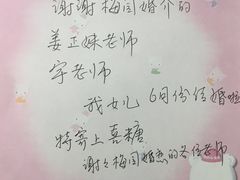 谢谢梅园婚介的
姜正妹老师
宇老师
我女儿6月份结婚啦
特寄上喜糖
谢谢梅园婚恋的各位老师